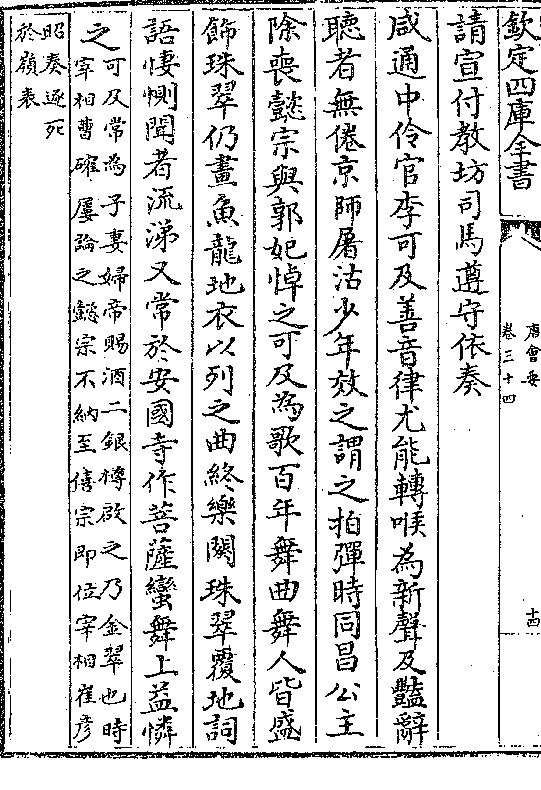 欽定四庫全書
唐會要
卷三十四
十四
請宣付教坊司馬遵守依奏
咸通中伶官李可及善音律尤能轉喉為新聲及豔辭
聽者無倦京師屠沽少年效之謂之拍彈時同昌公主
除喪懿宗與郭妃悼之可及為歌百年舞曲舞人皆盛
飾珠翠仍畫魚龍地衣以列之曲終樂闋珠翠覆地詞
語悽惻聞者流涕又常於安國寺作菩薩蠻舞上益憐
之
可及常為子妻婦帝賜酒二銀樽啟之乃金翠也時
宰相曹確屢論之懿宗不納至僖宗即位宰相崔彦
昭奏逐死
於嶺表